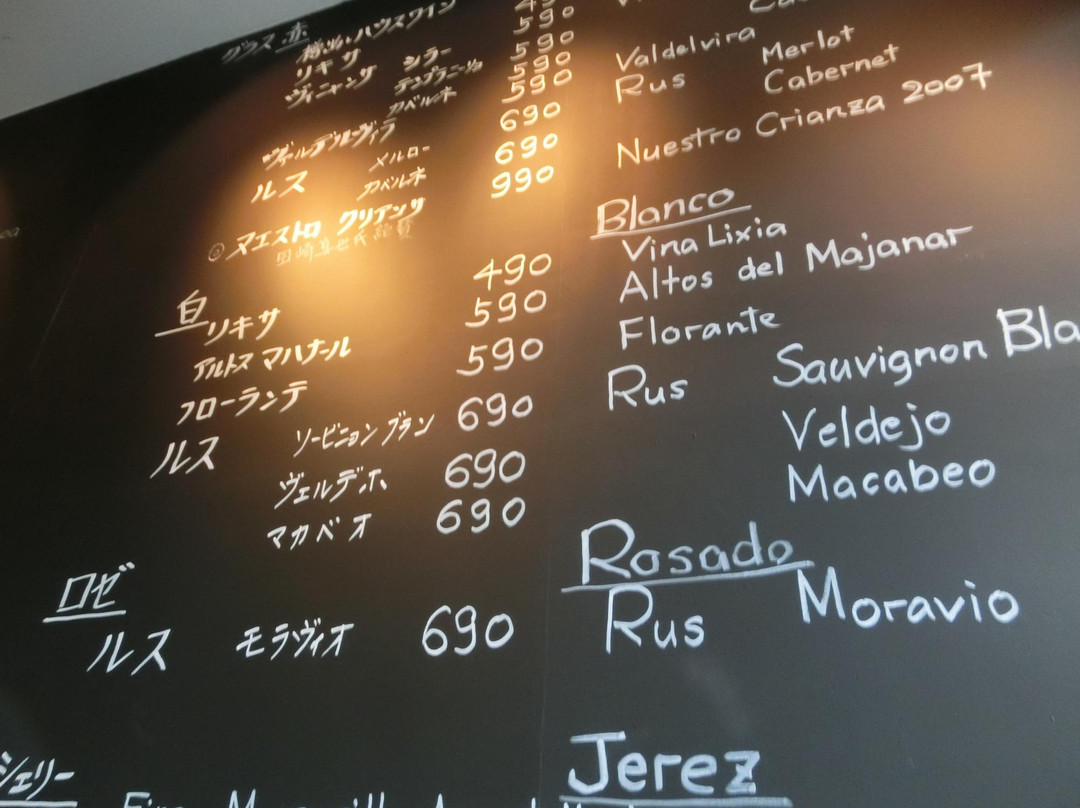 グラス 赤
ハウスワイン 49
リキサ 590
ヴィニャンサ シラー 590
テンプラニーリョ 590
カベルネ 590
ヴァルデルヴィラ 690
ルス メルロー 690
カベルネ 990
◎ マエストロ クリアンサ
白
リキサ 490
アルトス マハナール 590
フローランテ 590
ルス ソービニョン ブラン 690
ヴェルデホ 690
マカベオ 690
ロゼ
ルス モラヴィオ 690
シェリー
Valdelvira
Rus Merlot
Cabernet
Nuestro Crianza 2007
Blanco
Vina Lixia
Altos del Majanar
Florante
Rus Sauvignon Bla
Veldejo
Macabeo
Rosado
Rus Moravio
Jerez